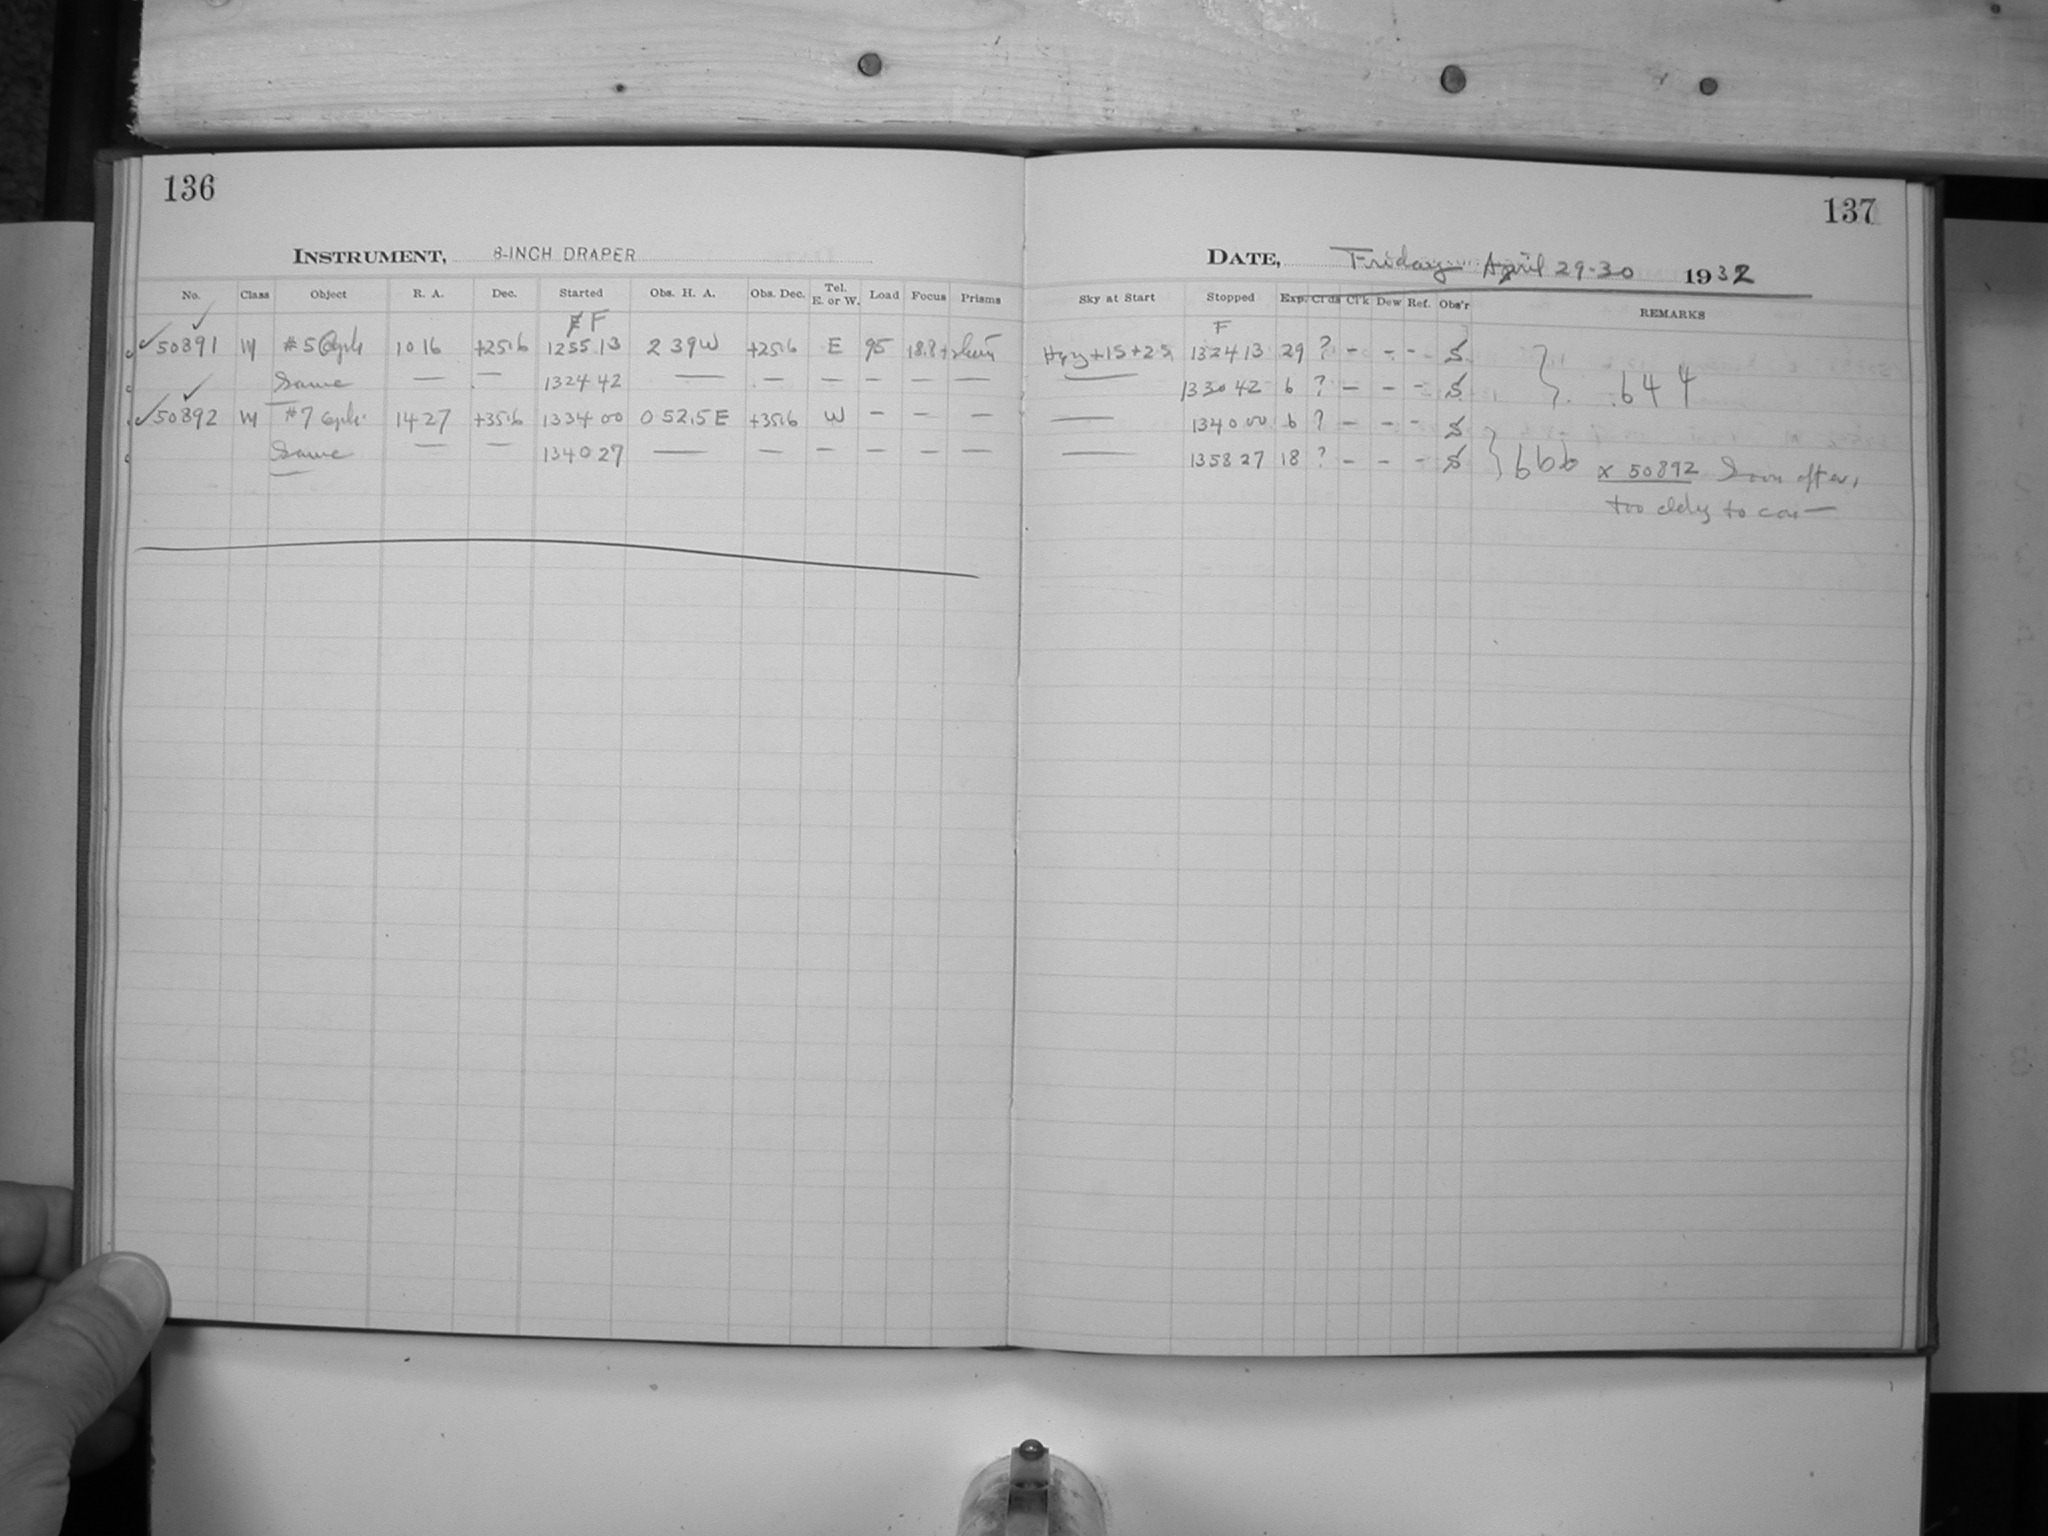 136
INSTRUMENT, 8-INCH DRAPER
No. Class Object R. A. Dec. Started Obs. H. A. Obs. Dec. Tel. E. or W. Load Focus Prisms
F
50891 M #5 10 16 +25.6 12 55 13 2 39 W +25.6 E 95 18.8+
Same — — 13 24 42 — — — — — —
50892 M #7 14 27 +35.6 13 34 00 0 52.5 E +35.6 W — — —
Same — — 13 40 27 — — — — — —
137
DATE, Friday April 29-30 1932
Sky at Start Stopped Exp. Cl'ds Cl'k Dew Ref. Obs'r REMARKS
F
Hzy +15 +25 13 24 13 29 ? - - - S
— 13 30 42 6 ? - - - S } .644
— 13 40 00 6 ? - - - S
— 13 58 27 18 ? - - - S } 666 x 50892 Soon after,
too cldy to